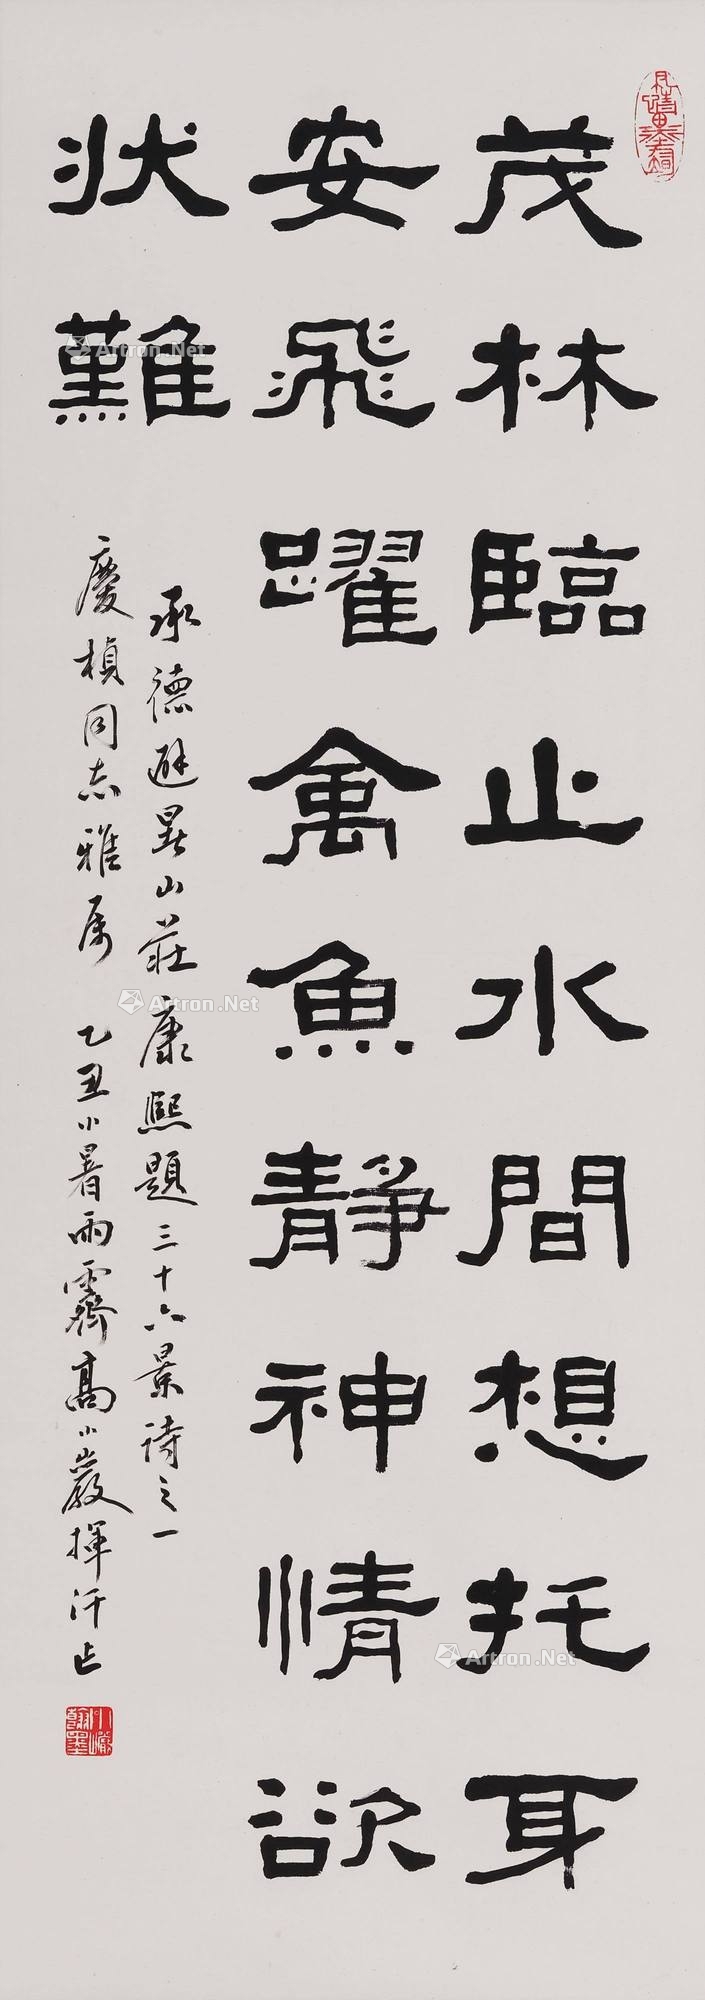 茂林臨止水間想托身
安飛躍禽魚靜神情欲
狀難
承德避暑山莊康熙題三十六景诗之一
慶楨同志雅属 乙丑小暑雨霽高小巖揮汗
Artron.Net
Artron.Net
Artron.Net